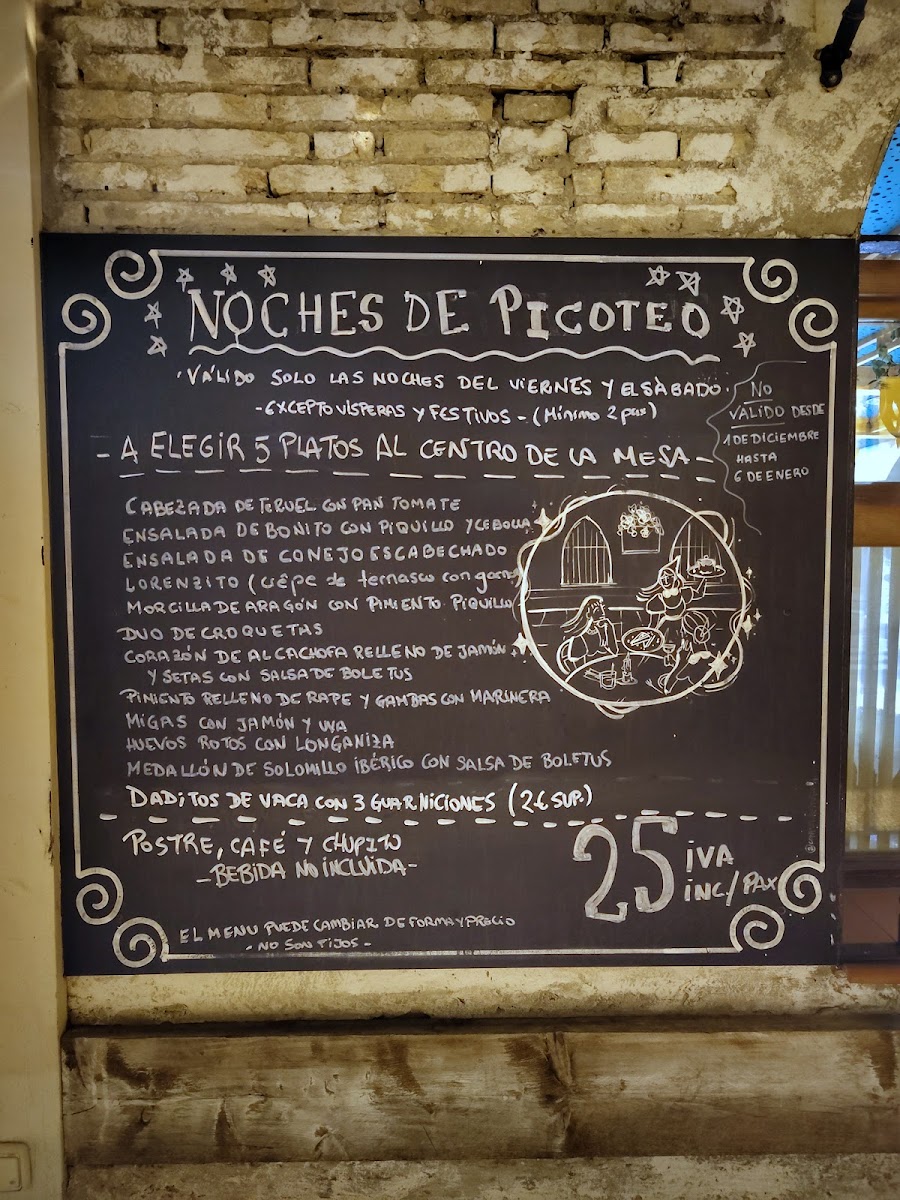 NOCHES DE PICOTEO
VÁLIDO SOLO LAS NOCHES DEL VIERNES Y EL SÁBADO
-EXCEPTO VÍSPERAS Y FESTIVOS- (Mínimo 2 pax)
NO
VALIDO DESDE
1 DE DICIEMBRE
HASTA
6 DE ENERO
- A ELEGIR 5 PLATOS AL CENTRO DE LA MESA -
CABEZADA DE TERUEL CON PAN TOMATE
ENSALADA DE BONITO CON PIQUILLO Y CEBOLLA
ENSALADA DE CONEJO ESCABECHADO
LORENZITO (crêpe de ternasco con
MORCILLA DE ARAGÓN CON PIMIENTO PIQUILLO
DUO DE CROQUETAS
CORAZÓN DE ALCACHOFA RELLENO DE JAMÓN
Y SETAS CON SALSA DE BOLETUS
PIMIENTO RELLENO DE RAPE Y GAMBAS CON MARINERA
MIGAS CON JAMÓN Y UVA
HUEVOS ROTOS CON LONGANIZA
MEDALLÓN DE SOLOMILLO IBÉRICO CON SALSA DE BOLETUS
DADITOS DE VACA CON 3 GUARNICIONES (2€ SUP.)
POSTRE, CAFÉ Y CHUPITO
- BEBIDA NO INCLUIDA -
25 IVA INC/PAX
EL MENU PUEDE CAMBIAR DE FORMA Y PRECIO
- NO SON FIJOS -